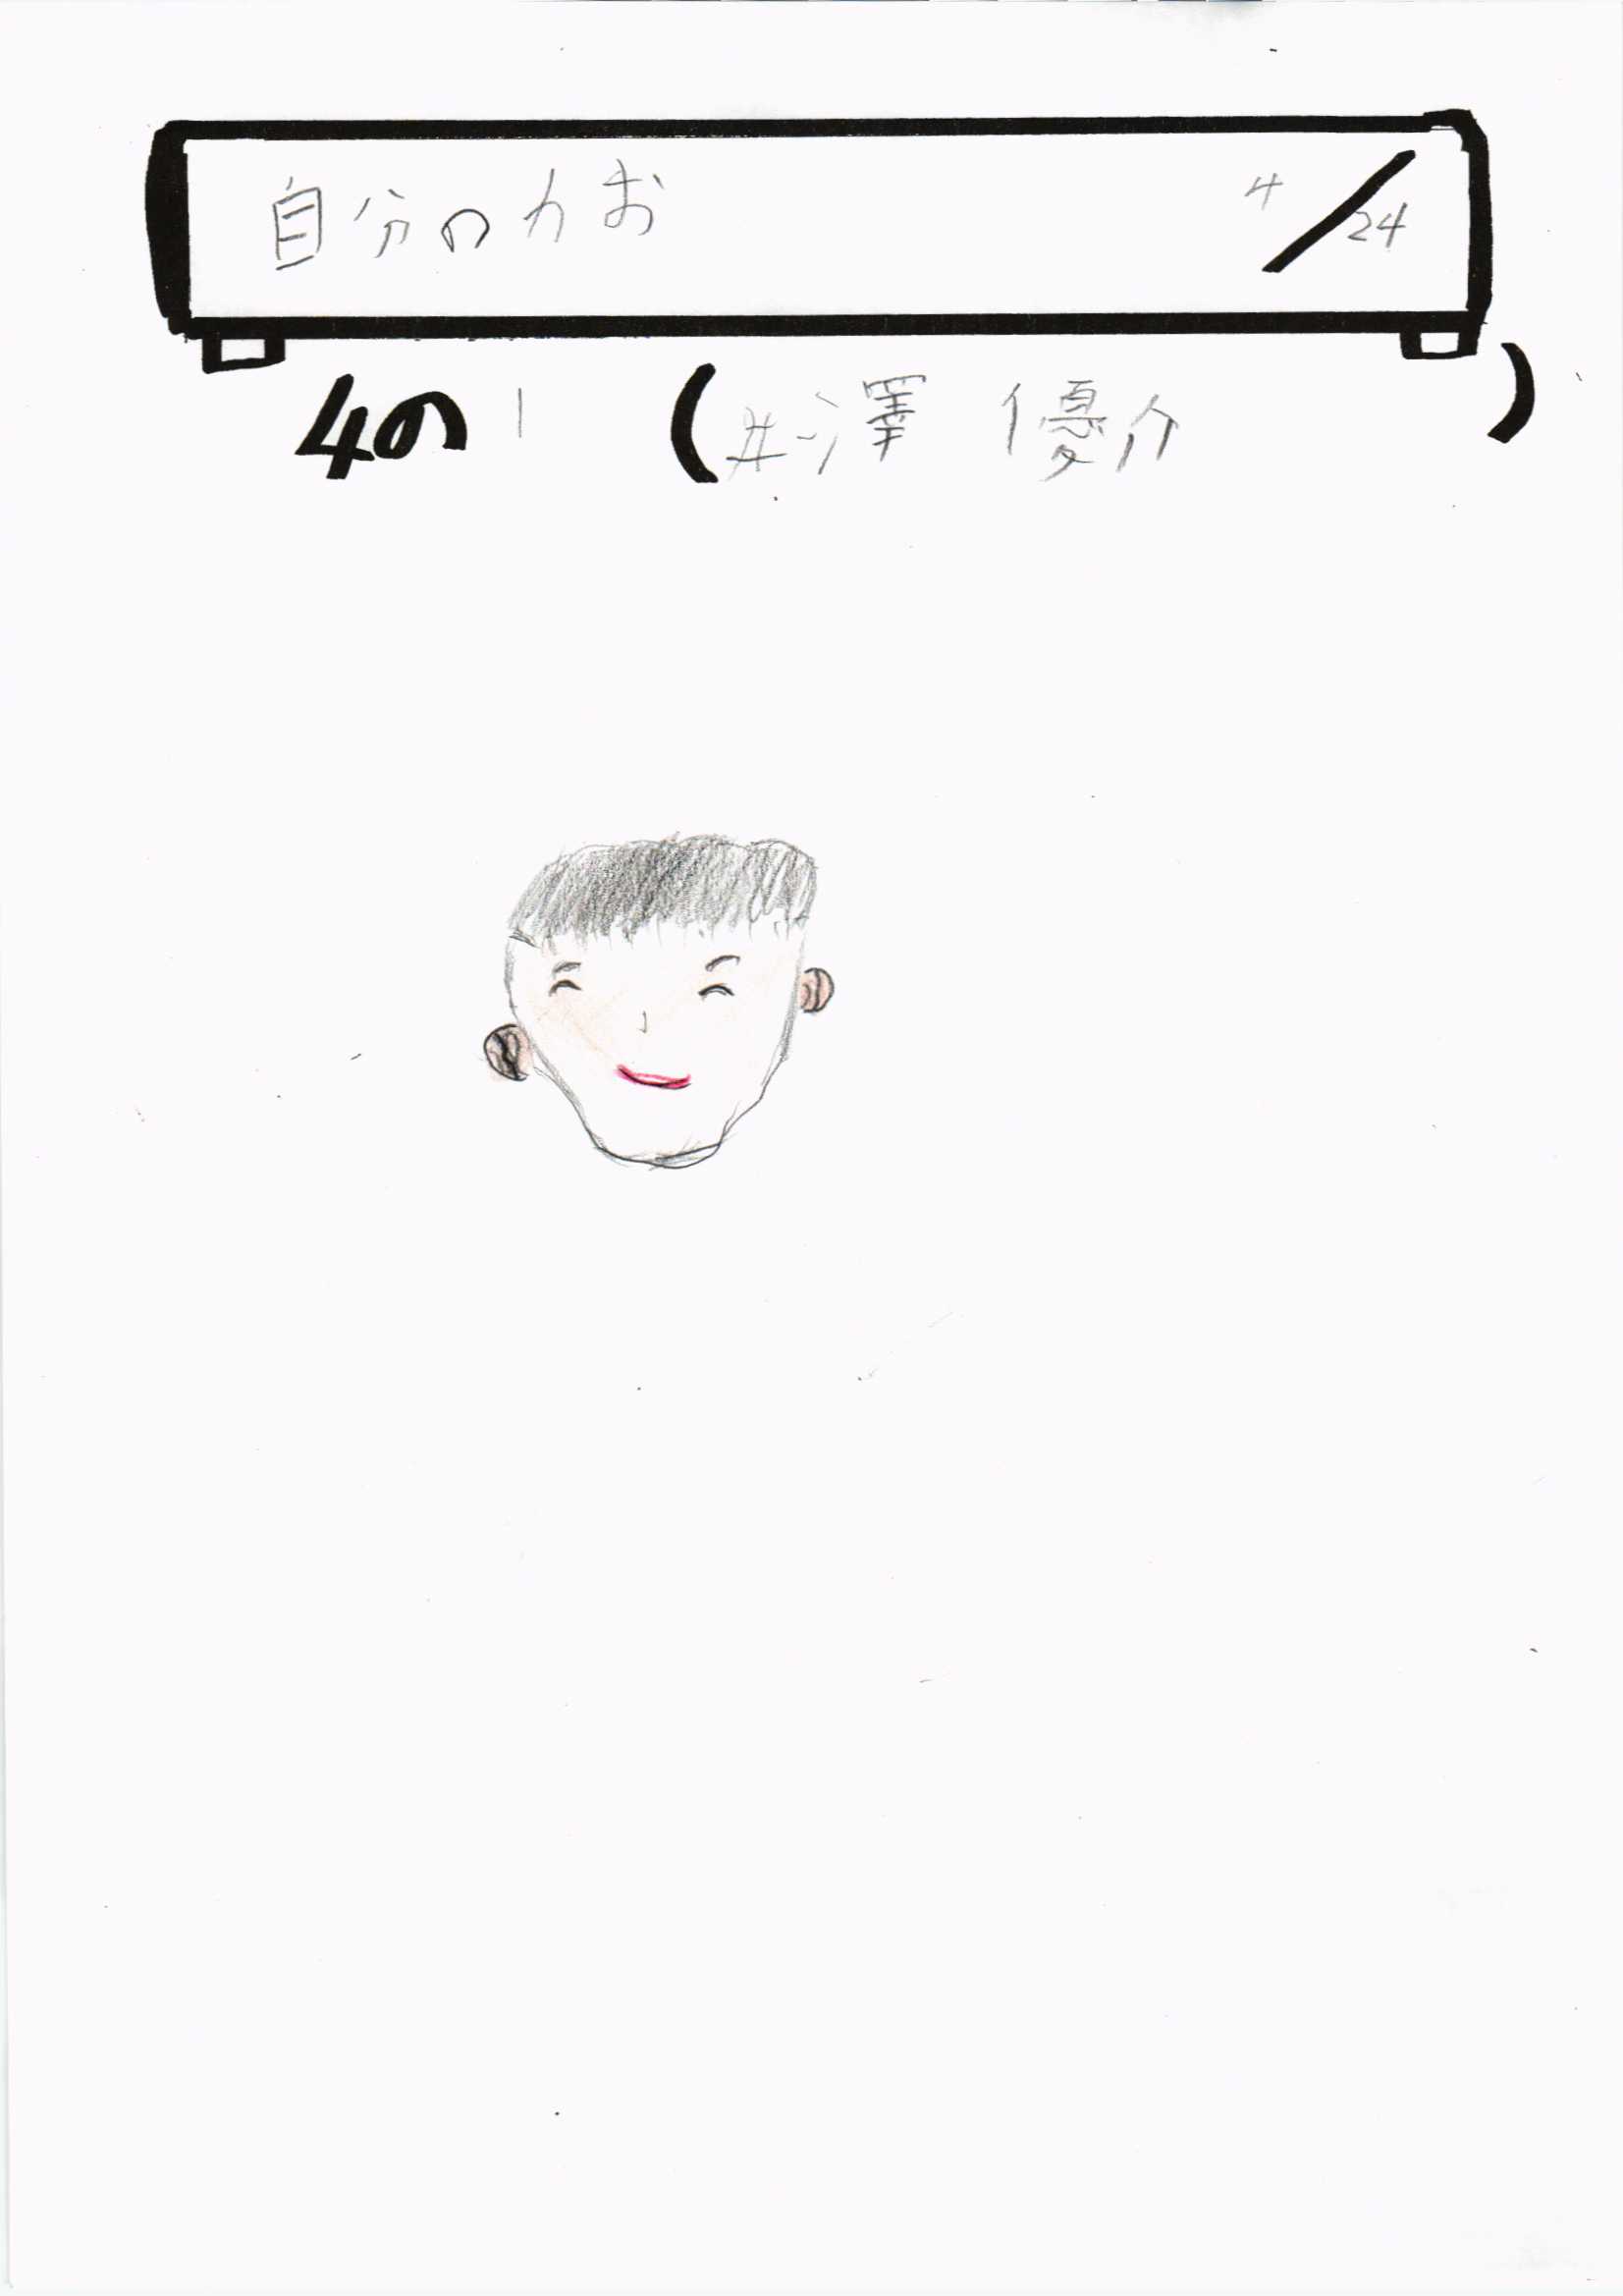 自分のかお 4/24
4の1 (井澤 優介)